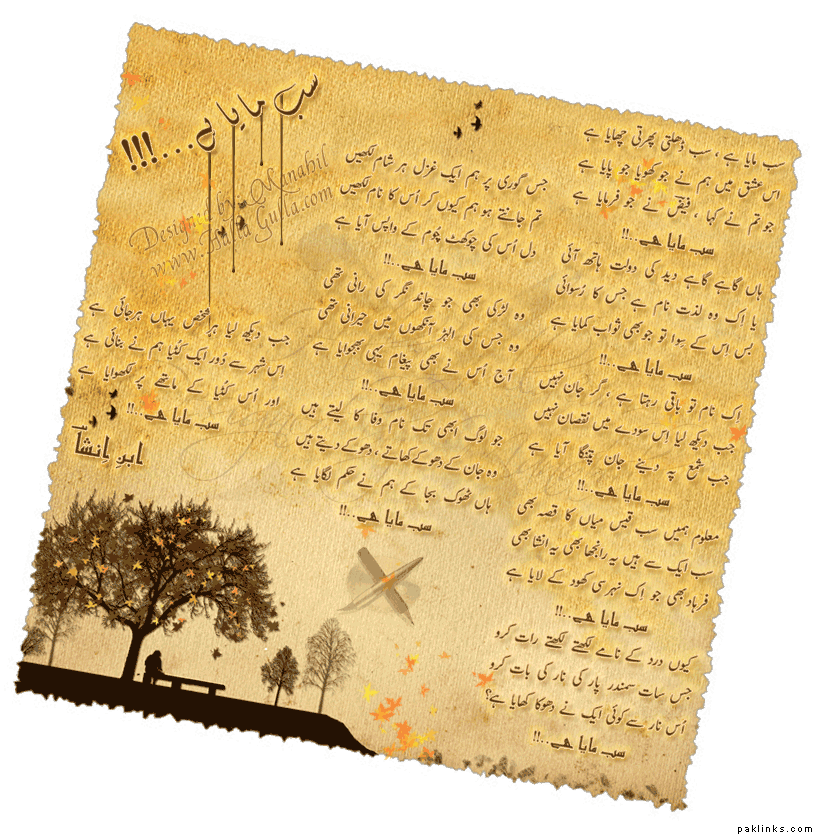 سب مایا ہے...!!!
Designed by: Manahil
www.HallaGulla.com
سب مایا ہے ، سب ڈھلتی پھرتی چھایا ہے
اس عشق میں ہم نے جو کھویا جو پایا ہے
جو تم نے کہا ، فیض نے جو فرمایا ہے
سب مایا ہے..!!
ہاں گاہے گاہے دید کی دولت ہاتھ آئی
یا اِک وہ لذت نام ہے جس کا رُسوائی
بس اِس کے سِوا تو جو بھی ثواب کمایا ہے
سب مایا ہے..!!
اِک نام تو باقی رہتا ہے ، گر جان نہیں
جب دیکھ لیا اِس سودے میں نقصان نہیں
جب شمع پہ دینے جان پتنگا آیا ہے
سب مایا ہے..!!
معلوم ہمیں سب قیس میاں کا قصہ بھی
سب ایک سے ہیں یہ رانجھا بھی یہ انشا بھی
فرہاد بھی جو اِک نہر سی کھود کے لایا ہے
سب مایا ہے..!!
کیوں درد کے نامے لکھتے لکھتے رات کرو
جس سات سمندر پار کی نار کی بات کرو
اُس نار سے کوئی ایک نے دھوکا کھایا ہے؟
سب مایا ہے..!!
جس گوری پر ہم ایک غزل ہر شام لکھیں
تم جانتے ہو ہم کیوں کر اُس کا نام لکھیں
دل اُس کی چوکھٹ چُوم کے واپس آیا ہے
سب مایا ہے..!!
وہ لڑکی بھی جو چاند نگر کی رانی تھی
وہ جس کی الہڑ آنکھوں میں حیرانی تھی
آج اُس نے بھی پیغام یہی بھجوایا ہے
سب مایا ہے..!!
جو لوگ ابھی تک نام وفا کا لیتے ہیں
وہ جان کے دھوکے کھاتے ، دھوکے دیتے ہیں
ہاں ٹھوک بجا کے ہم نے حکم لگایا ہے
سب مایا ہے..!!
جب دیکھ لیا ہر شخص یہاں ہرجائی ہے
اس شہر سے دُور ایک کُٹیا ہم نے بنائی ہے
اور اُس کُٹیا کے ماتھے پر لکھوایا ہے
سب مایا ہے..!!
ابنِ اِنشا
paklinks.com